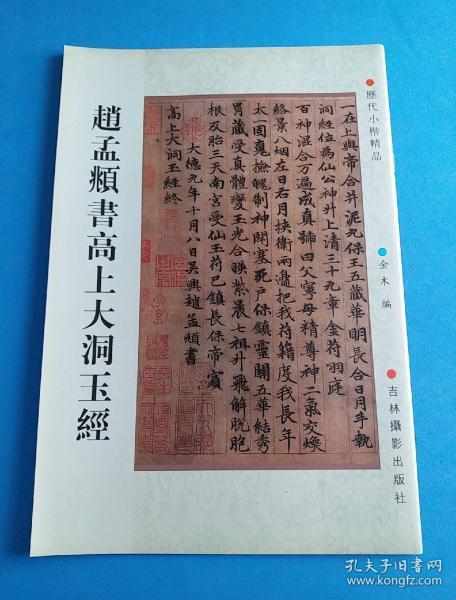 歷代小楷精品
金木 編
吉林攝影出版社
一在上與帝合并泥丸保王五藏華明長合日月手執
洞經位為仙公神升上清三十九章金符羽庭
百神混合万遍成真號曰父寧母精尊神二氣交煥
終景八烟左日右月挾衛兩邊把我符籍度我長年
太一固魂撿魄制神閉塞死户保鎮靈關五華結秀
胃藏受真體變玉光合暎紫晨七祖升飛解脫胞
根反胎三天南宮受仙玉苻已鎮長保帝賓
大德九年十月八日吳興趙孟頫書
高上大洞玉經終
趙孟頫書高上大洞玉經
孔夫子旧书网
www.kongfz.com